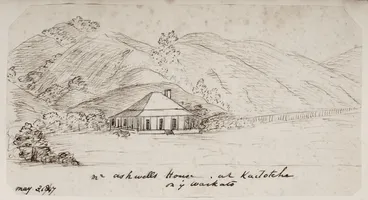 Mr Ashwells House . at Kaitotehe
on ye Waikato
May 2. 1847